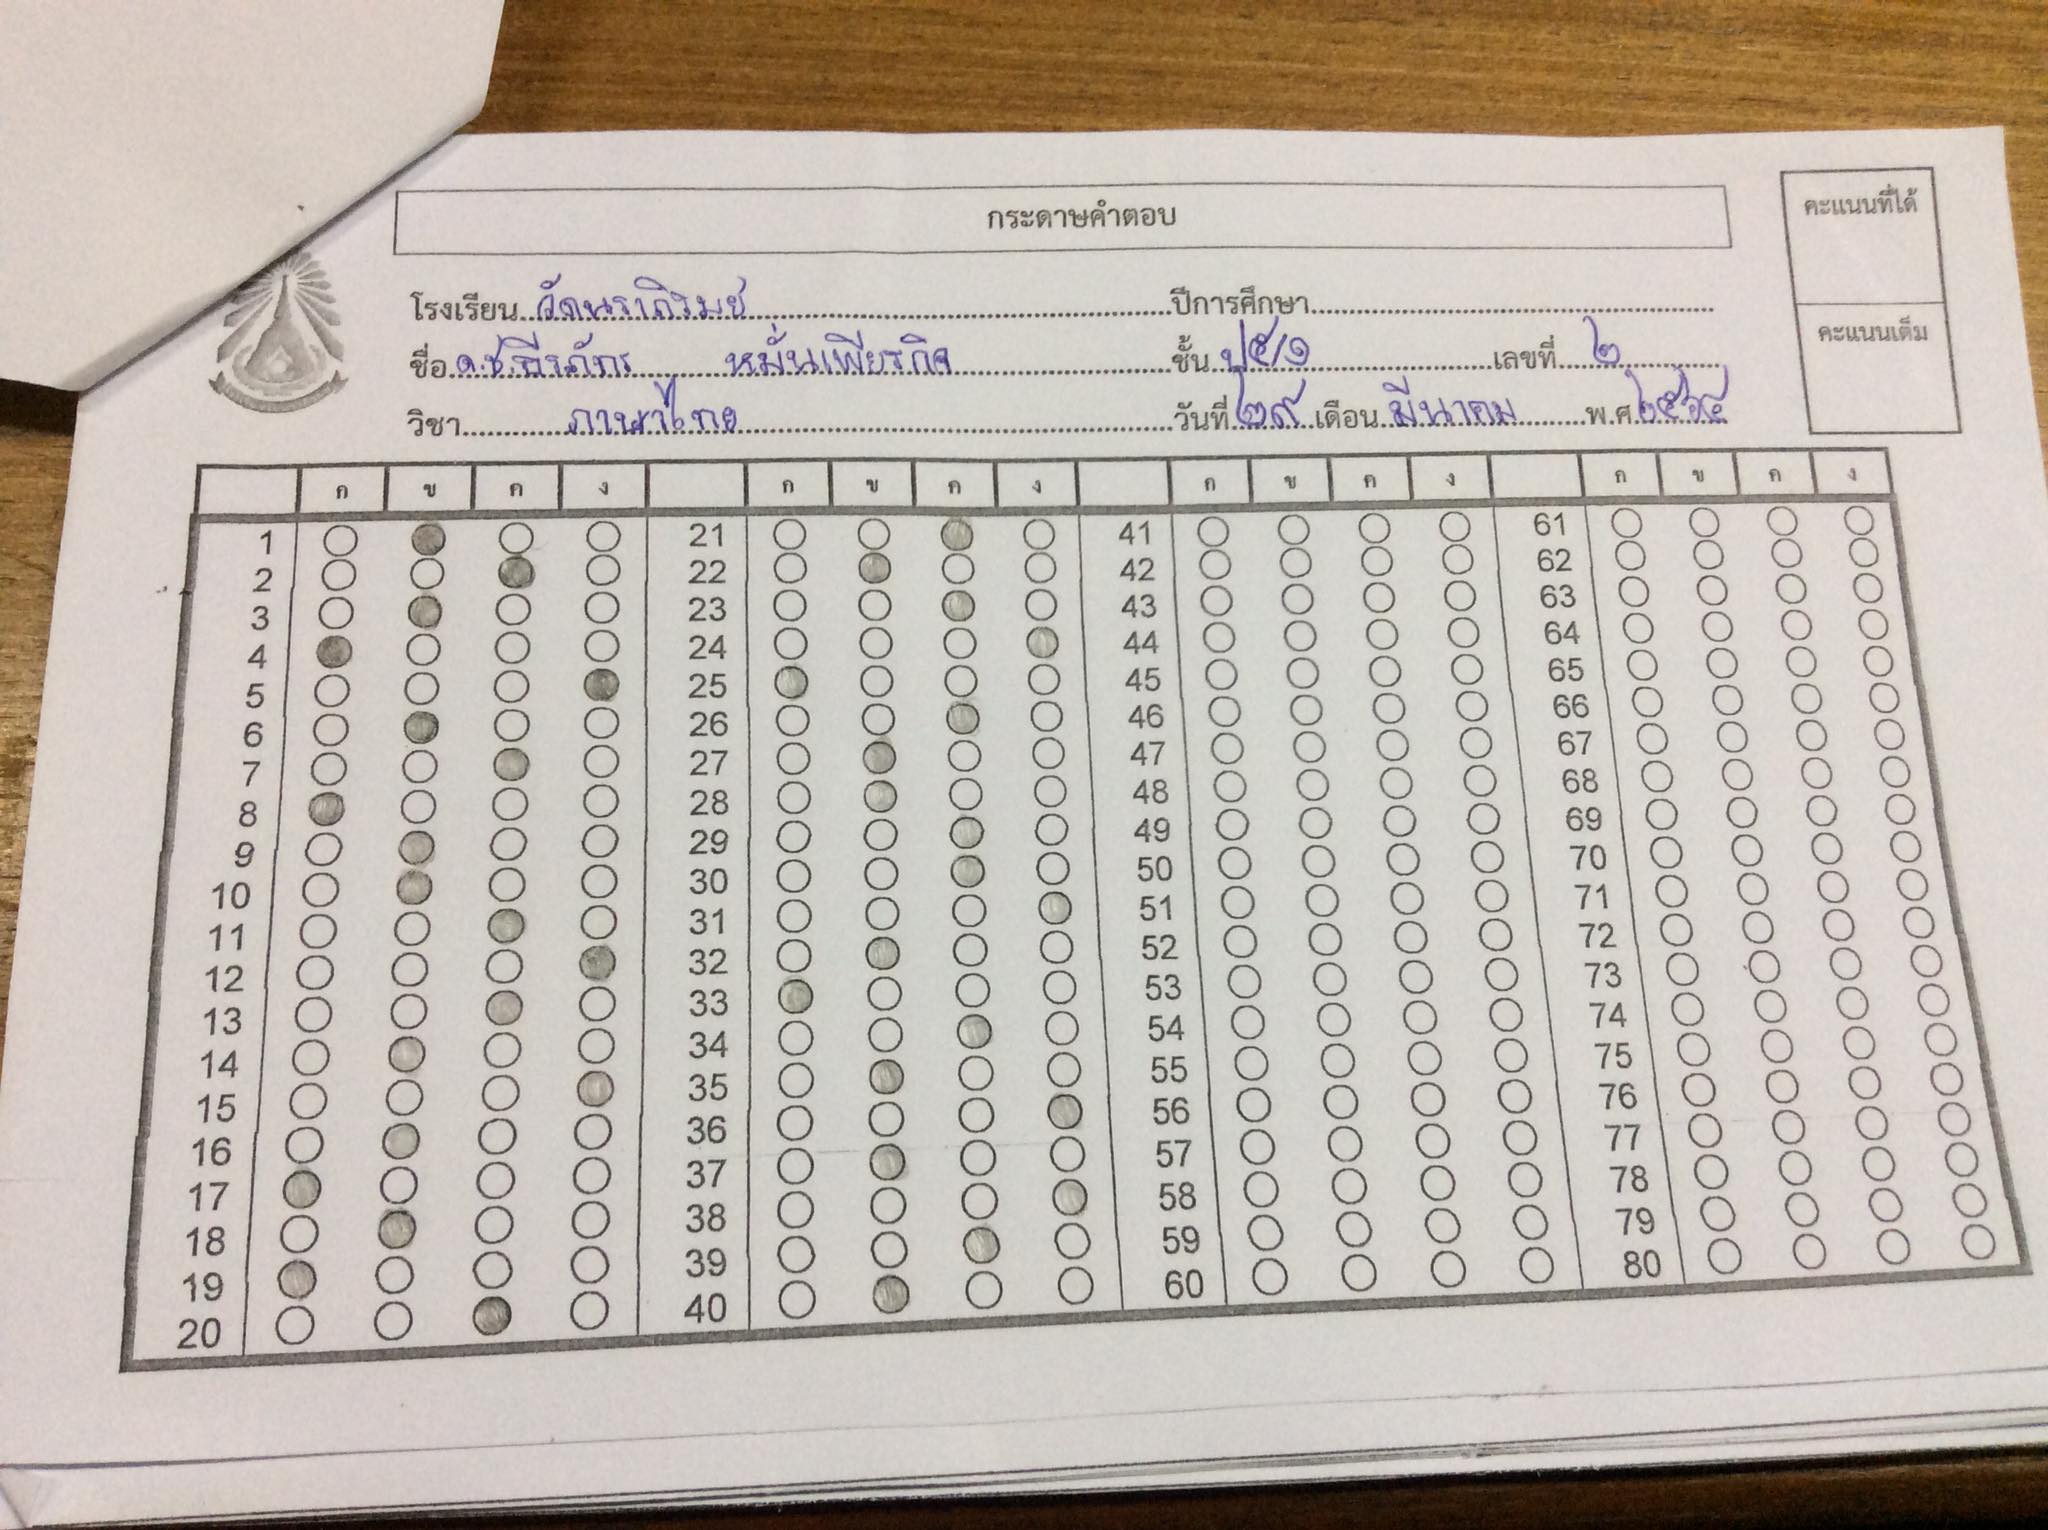 กระดาษคำตอบ
คะแนนที่ได้
คะแนนเต็ม
โรงเรียน วัดนราภิรมย์ ปีการศึกษา
ชื่อ ด.ช.ธีรภัทร หมั่นเพียรกิจ ชั้น ป๕/๑ เลขที่ ๒
วิชา ภาษาไทย วันที่ ๒๙ เดือน มีนาคม พ.ศ. ๒๕๖๔
ก ข ค ง ก ข ค ง ก ข ค ง ก ข ค ง
1 21 41 61
2 22 42 62
3 23 43 63
4 24 44 64
5 25 45 65
6 26 46 66
7 27 47 67
8 28 48 68
9 29 49 69
10 30 50 70
11 31 51 71
12 32 52 72
13 33 53 73
14 34 54 74
15 35 55 75
16 36 56 76
17 37 57 77
18 38 58 78
19 39 59 79
20 40 60 80